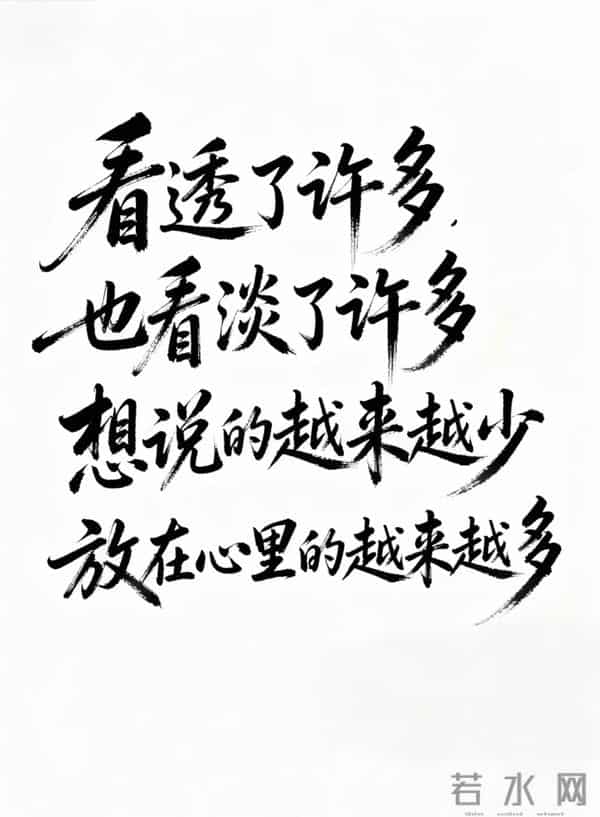 看透了许多,
也看淡了许多
想说的越来越少
放在心里的越来越多
若水网